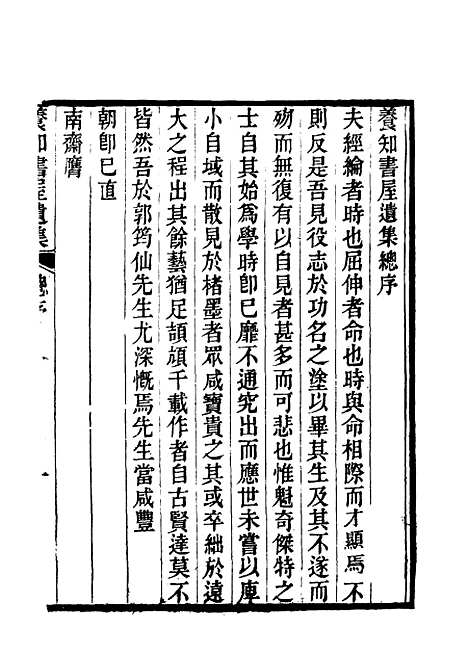 養知書屋遺集總序
夫經綸者時也屈伸者命也時與命相際而才顯焉不
則反是吾見役志於功名之塗以畢其生及其不遂而
歿而無復有以自見者甚多而可悲也惟魁奇傑特之
士自其始為學時卽已靡不通究出而應世未嘗以庳
小自域而散見於楮墨者眾咸寶貴之其或卒絀於遠
大之程出其餘藝猶足頡頏千載作者自古賢達莫不
皆然吾於郭筠仙先生尤深慨焉先生當咸豐
朝卽已直
南齋膺
養知書屋遺集
總序
一